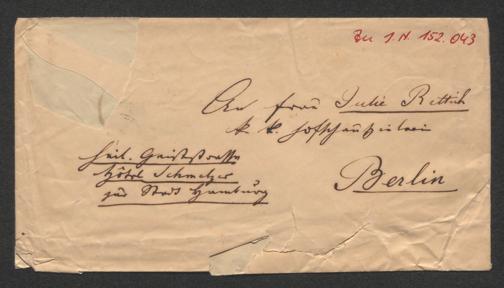 Zu I.N. 152.043
An Frau Julie Rettich
k. k. Hofschauspielerin
Berlin
heil. Geiststrasse
Hôtel Schmelzer
zur Stadt Hamburg